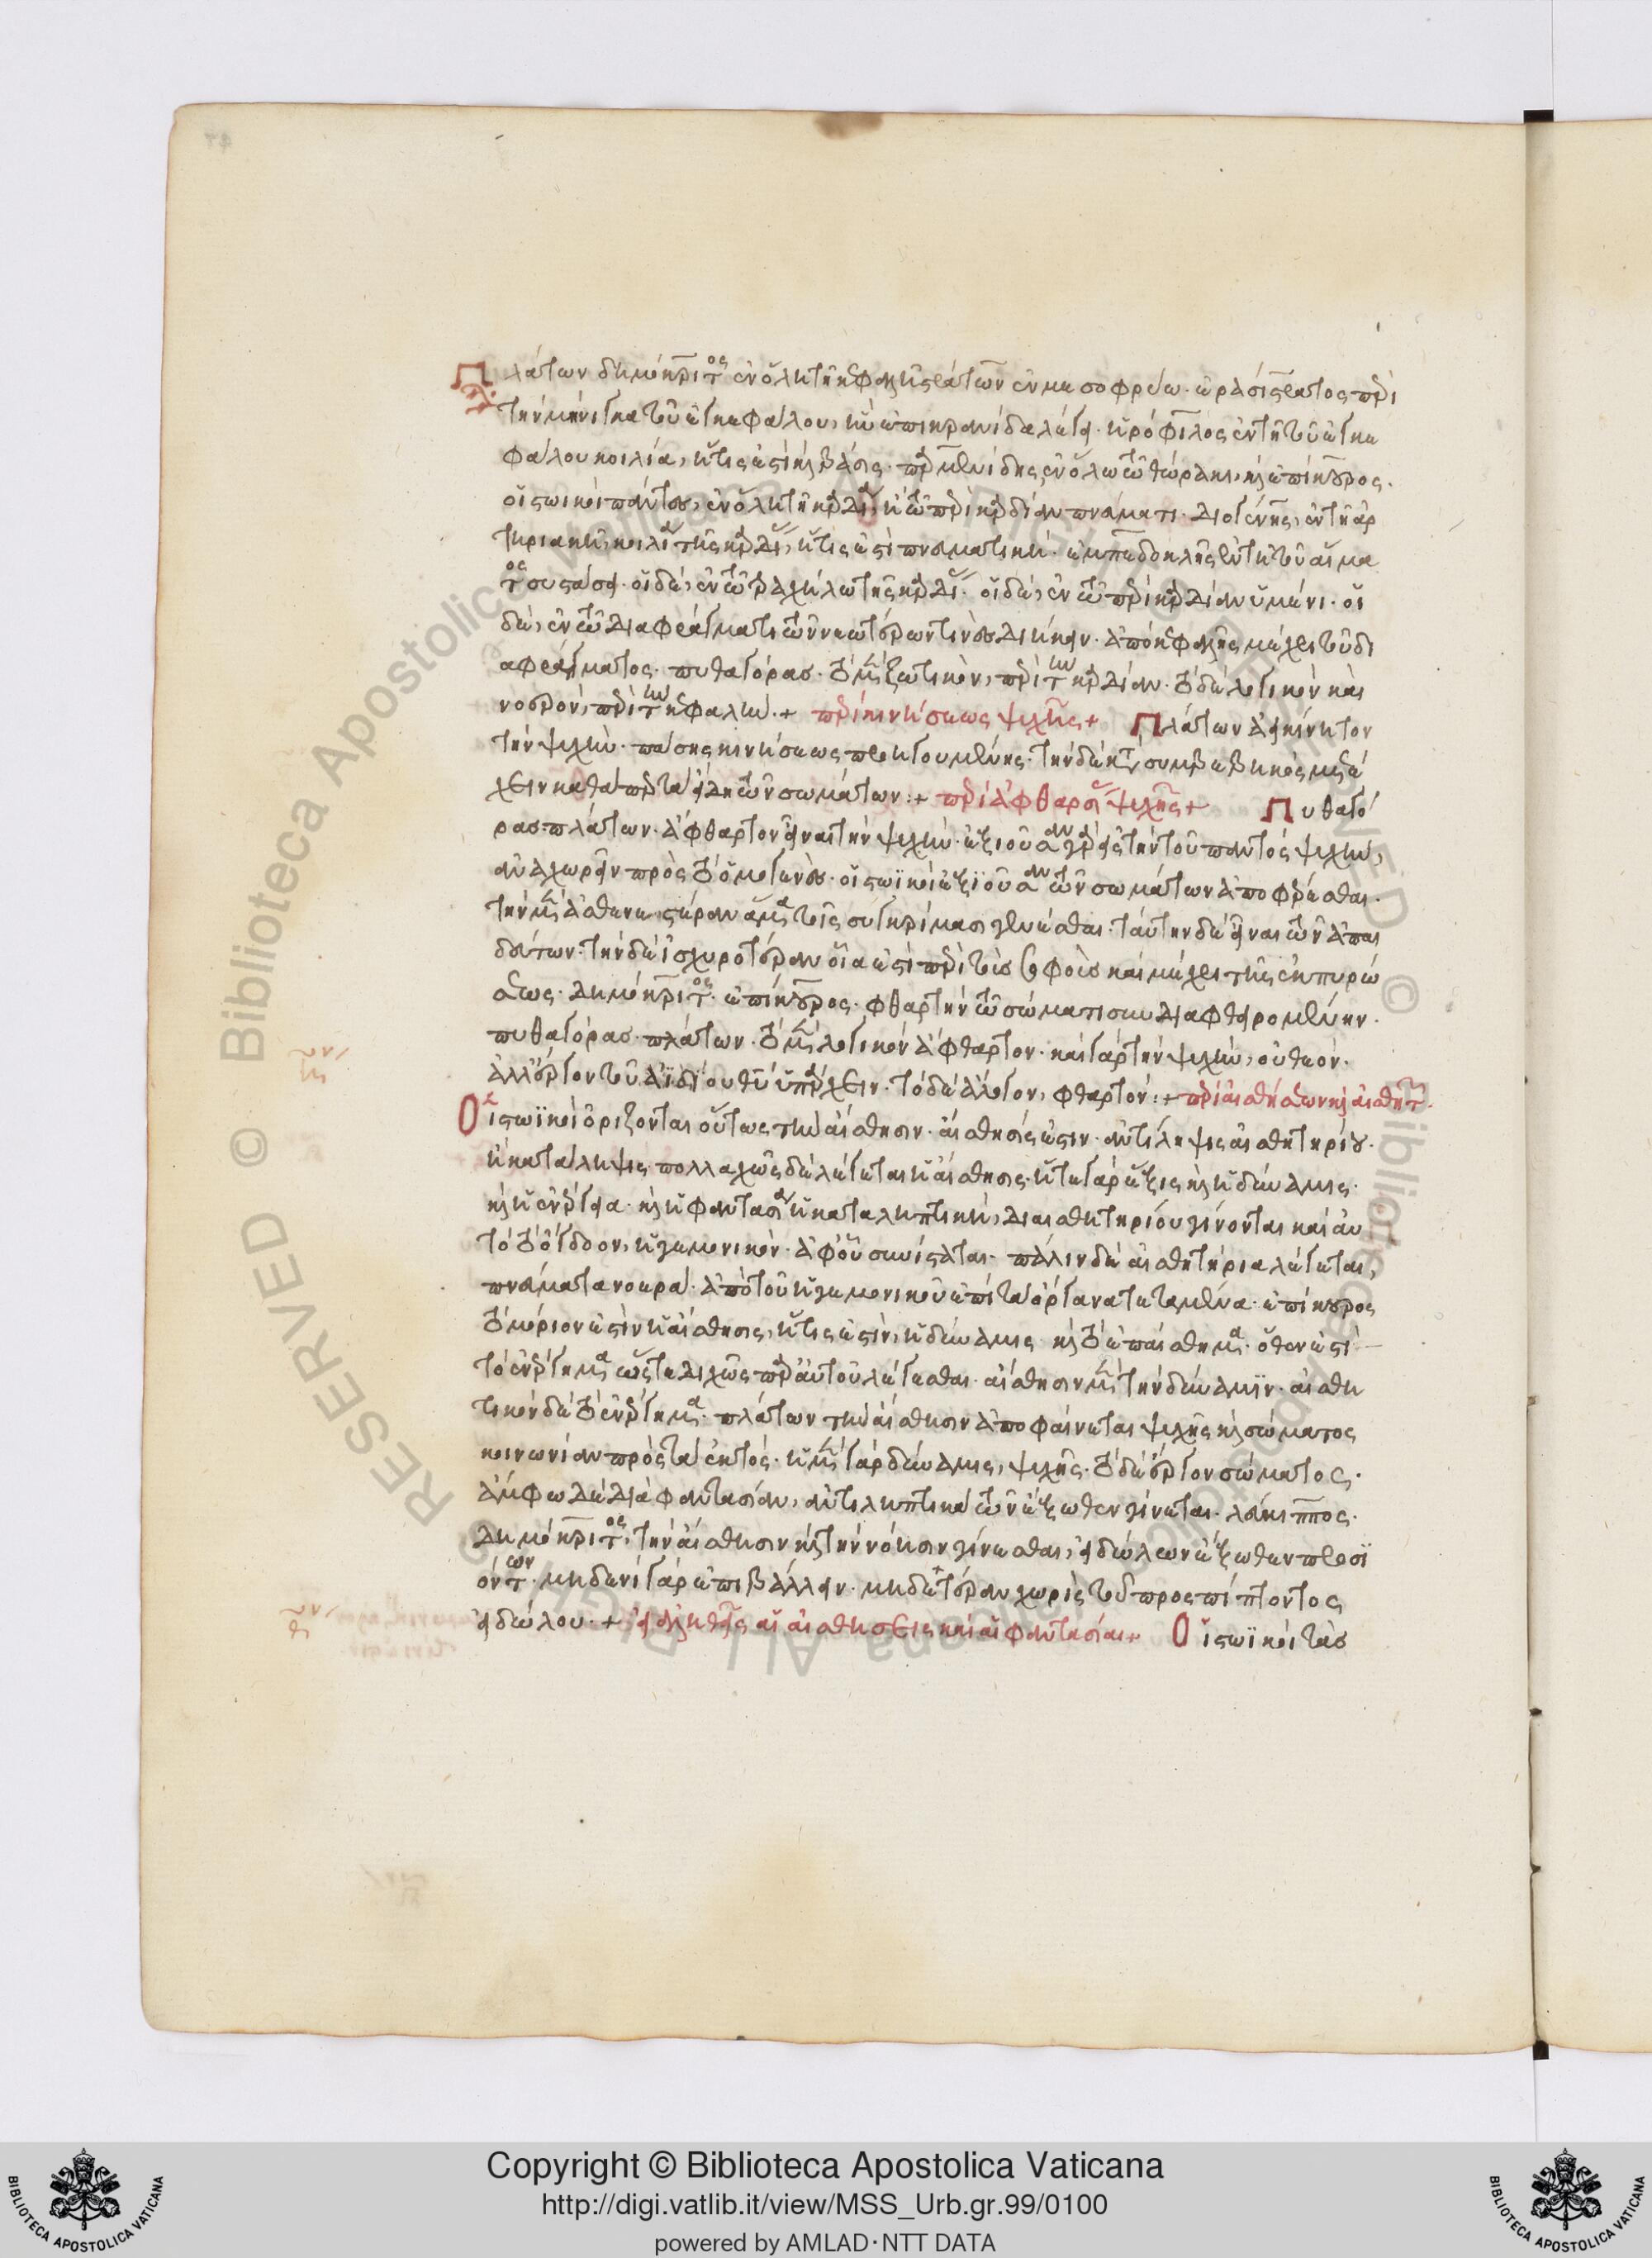 Πλάτων δημόκριτος ἐν ὅλη τῆ κεφαλῆ στράτων ἐν μεσοφρύω· ἐρασίστρατος περὶ
τὴν μήνιγγα τοῦ ἐγκεφάλου, ἣν ἐπικρανίδα λέγει· ἡρόφιλος ἐν τῆ τοῦ ἐγκε
φάλου κοιλία, ἥτις ἐστὶ καὶ βάσις· παρμενίδης ἐν ὅλω τῶ θώρακι, καὶ ἐπίκουρος·
οἱ στωικοὶ πάντες, ἐν ὅλη τῆ καρδία, ἢ τῶ περὶ καρδίαν πνεύματι· διογένης, ἐν τῆ ἀρ
τηριακῆ κοιλία τῆς καρδίας, ἥτις ἐστὶ πνευματική· ἐμπεδοκλῆς ἐν τῆ τοῦ αἵμα
τος συστάσει· οἱ δὲ, ἐν τῶ τραχήλω τῆς καρδίας· οἱ δὲ, ἐν τῶ περὶ καρδίαν ὑμένι· οἱ
δὲ, ἐν τῶ διαφράγματι τῶν νεωτέρων τινὲς διήκειν· ἀπὸ κεφαλῆς μέχρι τοῦ δι
αφράγματος· πυθαγόρας· τὸ μὲν ζωτικὸν, περὶ τὴν καρδίαν· τὸ δὲ λογικὸν καὶ
νοερὸν, περὶ τὴν κεφαλήν·+ περὶ κινήσεως ψυχῆς+ Πλάτων ἀεικίνητον
τὴν ψυχὴν· πάσης κινήσεως προηγουμένης· τὴν δὲ κατὰ συμβεβηκὸς μετέ
χειν καθάπερ τὰ εἴδη τῶν σωμάτων:+ περὶ ἀφθαρσίας ψυχῆς+ Πυθαγό
ρας πλάτων· ἄφθαρτον εἶναι τὴν ψυχὴν· ἐξιοῦσαν γὰρ εἰς τὴν τοῦ παντὸς ψυχὴν,
ἀναχωρεῖν πρὸς τὸ ὁμογενὲς· οἱ στωϊκοὶ ἐξιοῦσαν τῶν σωμάτων ἀποφέρεσθαι·
τὴν μὲν ἀσθενεστέραν ἅμα τοῖς συγκρίμασι γενέσθαι· ταύτην δὲ εἶναι τῶν ἀπαι
δεύτων· τὴν δὲ ἰσχυροτέραν οἵα ἐστὶ περὶ τοὺς σοφοὺς καὶ μέχρι τῆς ἐκπυρώ
σεως· δημόκριτος· ἐπίκουρος· φθαρτὴν τῶ σώματι συνδιαφθειρομένην·
πυθαγόρας· πλάτων· τὸ μὲν λογικὸν ἄφθαρτον· καὶ γὰρ τὴν ψυχὴν, οὐ θεὸν·
ἀλλ' ἔργον τοῦ ἀϊδίου θεοῦ ὑπάρχειν· τὸ δὲ ἄλογον, φθαρτόν:+ περὶ αἰσθήσεων καὶ αἰσθητῶν·
Οἱ στωϊκοὶ ὁρίζονται οὕτως τὴν αἴσθησιν· αἴσθησίς ἐστιν· ἀντίληψις αἰσθητηρίου·
ἢ κατάληψις· πολλαχῶς δὲ λέγεται ἡ αἴσθησις· ἥ τε γὰρ ἕξις καὶ ἡ δύναμις·
καὶ ἡ ἐνέργεια· καὶ ἡ φαντασία ἡ καταληπτικὴ, δι' αἰσθητηρίου γίνονται καὶ αὐ
τὸ τὸ ὄγδοον, ἡγεμονικὸν· ἀφ' οὗ συνίσταται· πάλιν δὲ αἰσθητήρια λέγεται,
πνεύματα νοερὰ· ἀπὸ τοῦ ἡγεμονικοῦ ἐπὶ τὰ ὄργανα τεταμένα· ἐπίκουρος
τὸ μόριον ἐστὶν ἡ αἴσθησις, ἥτις ἐστὶν, ἡ δύναμις καὶ τὸ ἐπαίσθημα· ὅθεν ἐστὶ
τὸ ἐνέργημα ὥστε διχῶς παρ' αὐτοῦ λέγεσθαι· αἴσθησιν μὲν τὴν δύναμϊν· αἰσθη
τικὸν δὲ τὸ ἐνέργημα· πλάτων τὴν αἴσθησιν ἀποφαίνεται ψυχῆς καὶ σώματος
κοινωνίαν πρὸς τὰ ἐκτός· ἡ μὲν γὰρ δύναμις, ψυχῆς· τὸ δὲ ὄργανον σώματος·
ἄμφω δὲ διὰ φαντασίαν, ἀντιληπτικὰ τῶν ἔξωθεν γίνεται· λεύκιππος·
δημόκριτος, τὴν αἴσθησιν καὶ τὴν νόησιν γίνεσθαι, εἰδώλων ἔξωθεν προσϊ
όντων· μηδενὶ γὰρ ἐπιβάλλειν· μηδετέραν χωρὶς τοῦ προσπίπτοντος
εἰδώλου·+ εἰ ἀληθεῖς αἱ αἰσθήσεις καὶ αἱ φαντασίαι+ Οἱ στωϊκοὶ τὰς
Copyright © Biblioteca Apostolica Vaticana
http://digi.vatlib.it/view/MSS_Urb.gr.99/0100
powered by AMLAD·NTT DATA